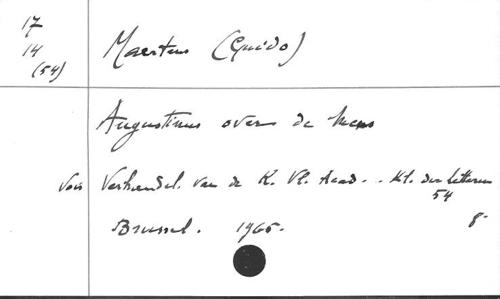 17
14
(54)
Maertens (Guido)
Augustinus over de mens
Voir Verhandel. van de K. Vl. Acad. .. Kl. der Letteren
54
Brussel. 1965. 8-